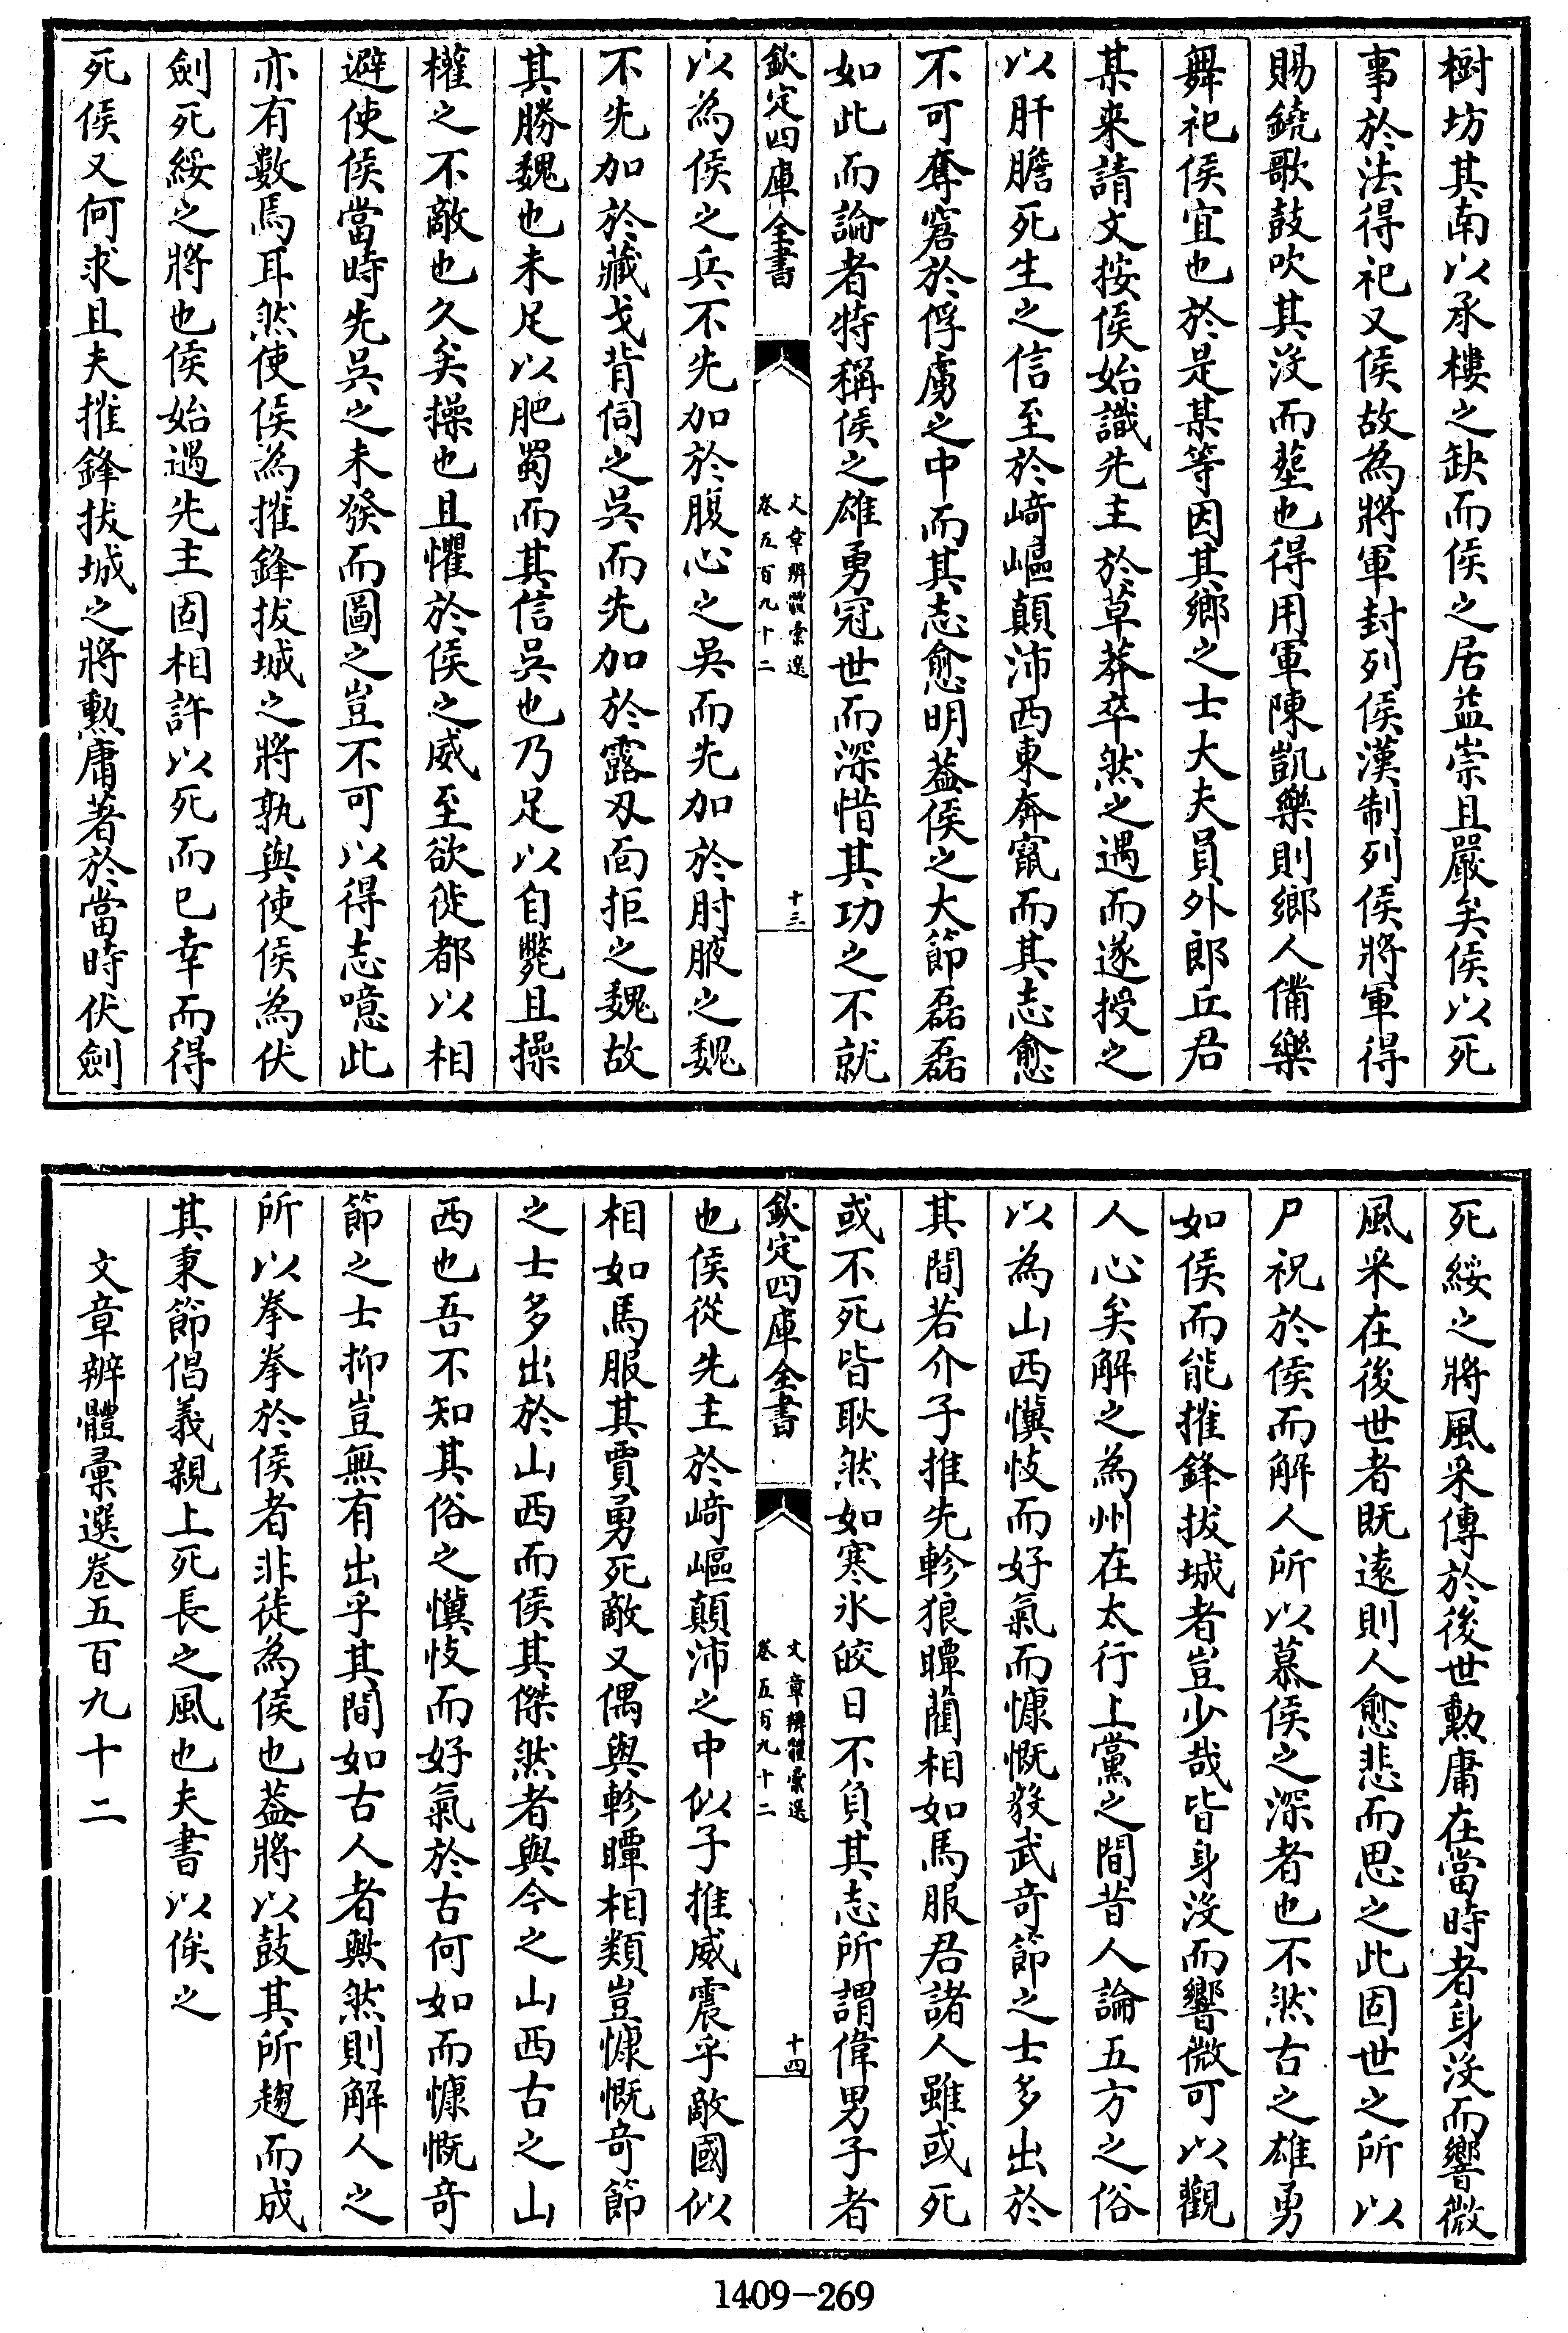 樹坊其南以承樓之缺而侯之居益崇且嚴矣侯以死
事於法得祀又侯故為將軍封列侯漢制列侯將軍得
賜鐃歌鼓吹其沒而塟也得用軍陳凱樂則鄉人備樂
舞祀侯宜也於是某等因其鄉之士大夫員外郎丘君
某来請文按侯始識先主於草莽卒然之遇而遂授之
以肝膽死生之信至於﨑嶇顛沛西東奔竄而其志愈
不可奪窘於俘虜之中而其志愈明葢侯之大節磊磊
如此而論者特稱侯之雄勇冠世而深惜其功之不就
欽定四庫全書
文章辨體彙選
卷五百九十二
十三
以為侯之兵不先加於腹心之吳而先加於肘腋之魏
不先加於藏戈背伺之吳而先加於露刄面拒之魏故
其勝魏也未足以肥蜀而其信吳也乃足以自斃且操
權之不敵也久矣操也且懼於侯之威至欲徙都以相
避使侯當時先吳之未發而圖之豈不可以得志噫此
亦有數焉耳然使侯為摧鋒拔城之將孰與使侯為伏
劍死綏之將也侯始遇先主固相許以死而已幸而得
死侯又何求且夫摧鋒拔城之將勲庸著於當時伏劍
死綏之將風采傳於後世勲庸在當時者身沒而響微
風采在後世者既遠則人愈悲而思之此固世之所以
尸祝於侯而解人所以慕侯之深者也不然古之雄勇
如侯而能摧鋒拔城者豈少哉皆身沒而響微可以觀
人心矣解之為州在太行上黨之間昔人論五方之俗
以為山西懻忮而好氣而慷慨毅武竒節之士多出於
其間若介子推先軫狼瞫藺相如馬服君諸人雖或死
或不死皆耿然如寒氷皎日不負其志所謂偉男子者
欽定四庫全書
文章辨體彙選
卷五百九十二
十四
也侯從先主於﨑嶇顛沛之中似子推威震乎敵國似
相如馬服其賈勇死敵又偶與軫瞫相類豈慷慨竒節
之士多出於山西而侯其傑然者與今之山西古之山
西也吾不知其俗之懻忮而好氣於古何如而慷慨竒
節之士抑豈無有出乎其間如古人者歟然則解人之
所以拳拳於侯者非徒為侯也葢將以鼓其所趨而成
其秉節倡義親上死長之風也夫書以俟之
文章辨體彙選卷五百九十二
1409-269